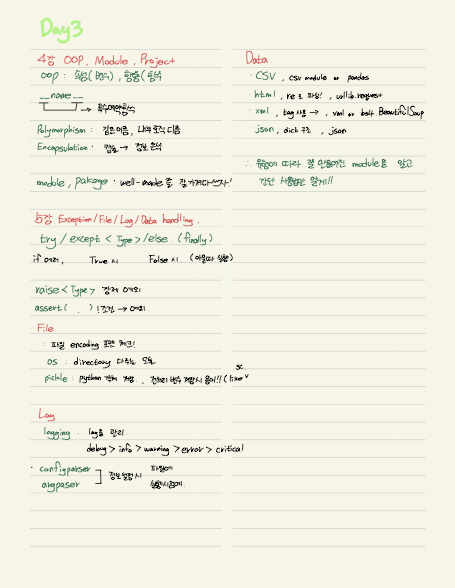 Day3
4강. OOP, Module, Project
OOP : 속성(변수), 행동(함수)
__name__
→ 특수예약함수
Polymorphism : 같은이름, 내부 로직 다름
Encapsulation · 캡슐 → 정보 은닉
module, package · well-made 를 잘 가져다쓰자!
5강. Exception / File / Log / Data handling.
try / except < Type > / else. (finally)
if 에러, True 시 False 시.
raise < Type > 강제 예외
assert ( , ) ! 조건 → 예외.
File
: 파일 encoding 표준 체크!
os : directory 다루는 모듈
pickle : python 객체 저장.
Log
logging · log를 관리.
debug > info > warning > error > critical
· configparser
argpaser
정보설정시
파일에
실행시점에.
Data
· CSV , csv module or pandas
html , re 로 파싱! , urllib.request
· xml , tag 사용 → , xml or bs4. BeautifulSoup
json , dict 구조 , json
∴ 유형에 따라 잘 만들어진 module을 알고
간단 사용법만 알자!!